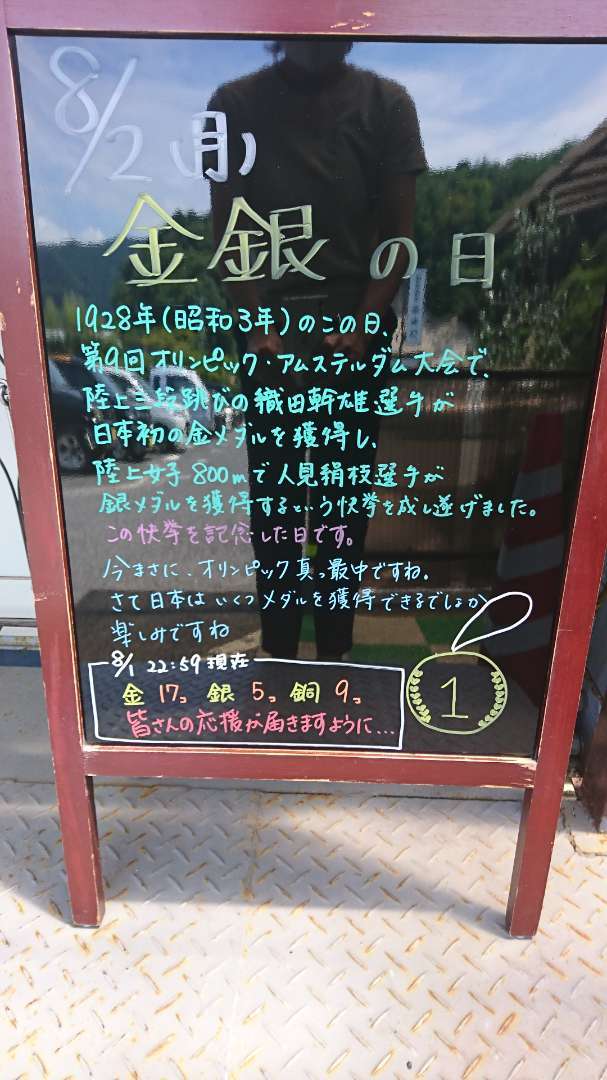 8/2(月)
金銀の日
1928年(昭和3年)のこの日、
第9回オリンピック・アムステルダム大会で、
陸上三段跳びの織田幹雄選手が
日本初の金メダルを獲得し、
陸上女子800mで人見絹枝選手が
銀メダルを獲得するという快挙を成し遂げました。
この快挙を記念した日です。
今まさに、オリンピック真っ最中ですね。
さて日本はいくつメダルを獲得できるでしょか
楽しみですね
8/1 22:59現在
金17コ 銀5コ 銅9コ
皆さんの応援が届きますように...
1